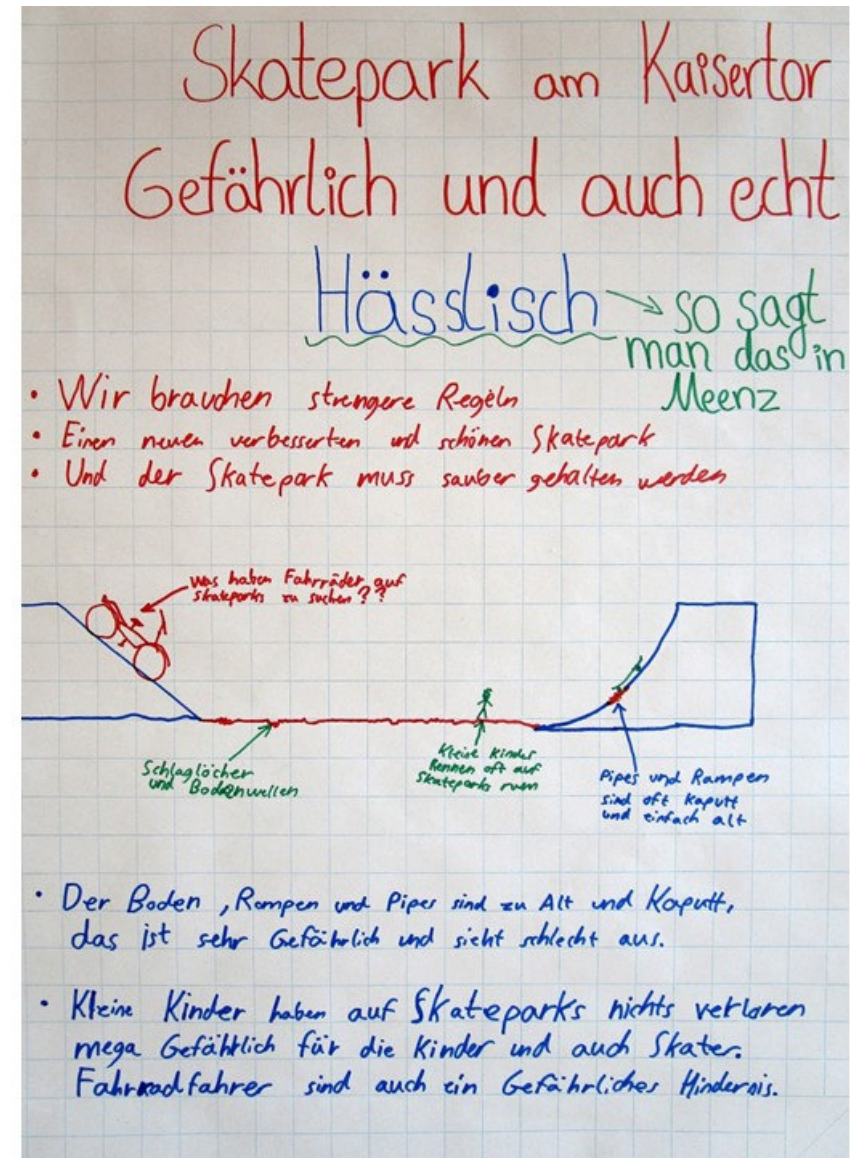 Skatepark am Kaisertor
Gefährlich und auch echt
Hässlisch → so sagt
man das in
Meenz
• Wir brauchen strengere Regeln
• Einen neuen verbesserten und schönen Skatepark
• Und der Skatepark muss sauber gehalten werden
Was haben Fahrräder auf
skateparks zu suchen??
Schlaglöcher
und Bodenwellen
Kleine Kinder
Rennen oft auf
Skateparks rum
Pipes und Rampen
sind oft Kaputt
und einfach alt
• Der Boden, Rampen und Pipes sind zu Alt und Kaputt,
das ist sehr Gefährlich und sieht schlecht aus.
• Kleine Kinder haben auf Skateparks nichts verloren
mega Gefährlich für die Kinder und auch Skater.
Fahrradfahrer sind auch ein Gefährliches Hindernis.